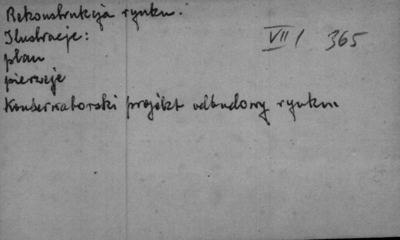 Rekonstrukcja rynku.
Ilustracje:
VII / 365
plan
pierzeje
Konserwatorski projekt odbudowy rynku